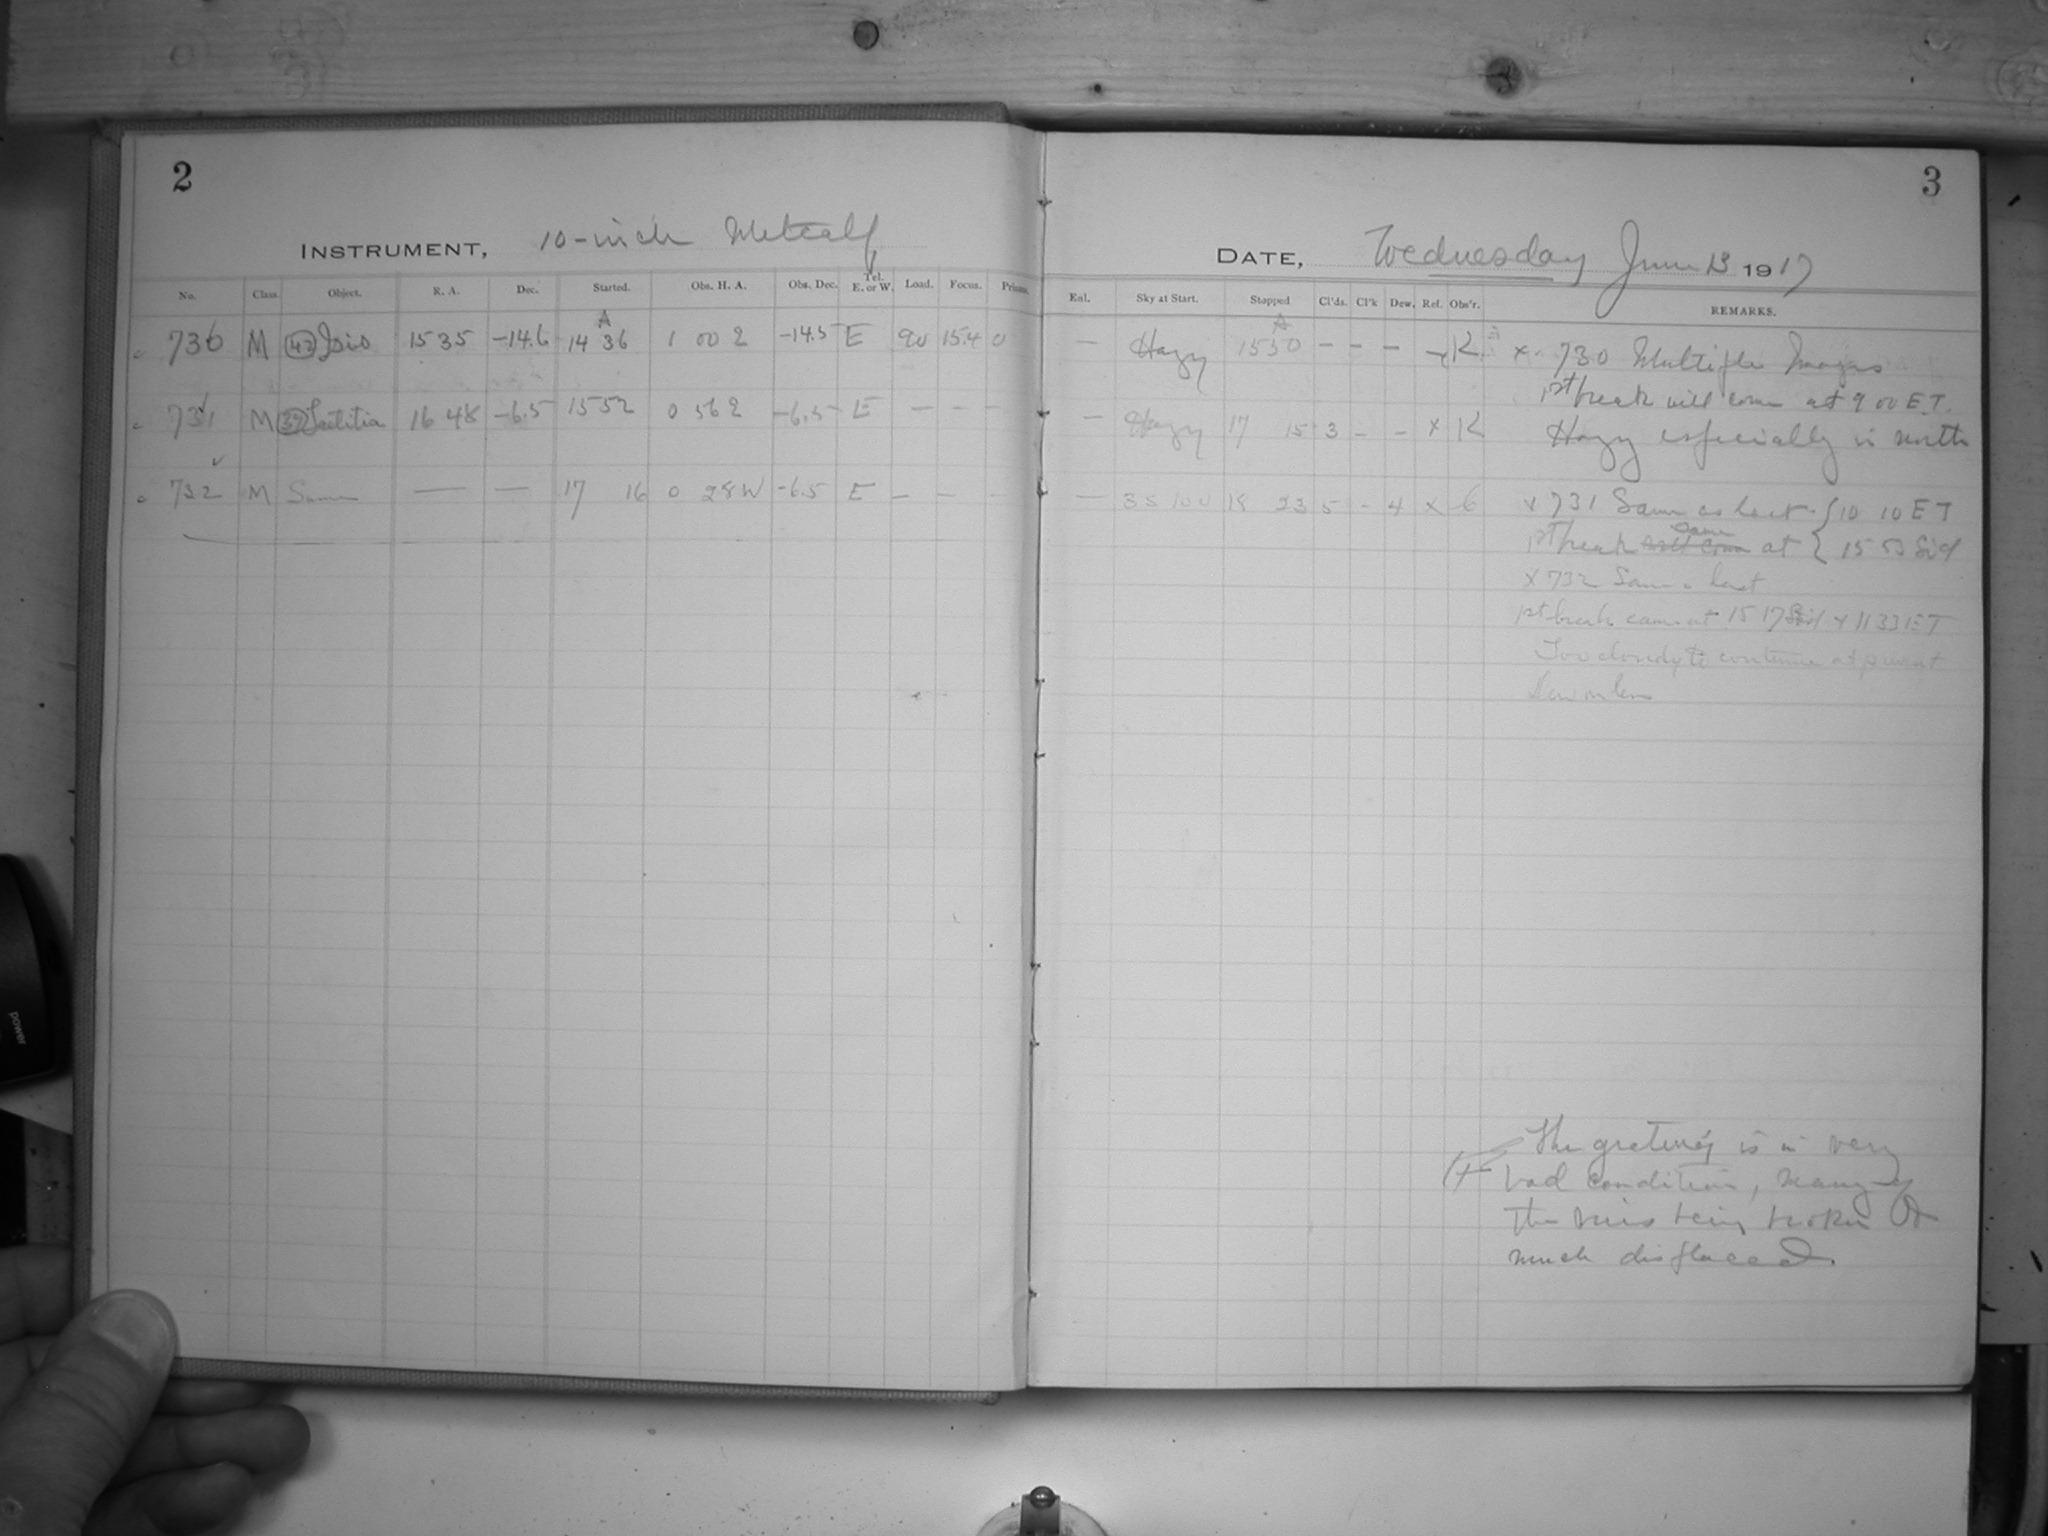 2
INSTRUMENT, 10-inch Metcalf
No. Class. Object. R. A. Dec. Started. Obs. H. A. Obs. Dec. Tel. E. or W. Load. Focus. Prisms.
730 M (42) Isis 15 35 -14.6 14 36 1 00 E -14.5 E 90 15.4 0
731 M (39) Laetitia 16 48 -6.5 15 52 0 56 E -6.5 E — — —
732 M Same — — 17 16 0 28 W -6.5 E — — —
3
DATE, Wednesday June 13 1917
Enl. Sky at Start. Stopped Cl'ds. Cl'k Dew. Ref. Obs'r. REMARKS.
— Hazy 15 50 — — — K x 730 Multiple Images
1st break will come at 9 00 E.T.
— Hazy 17 15 3 - - x K Hazy especially in north
— 18 23 5 - 4 x x 731 Same as last { 10 10 E T
1st break will come came at { 15 53 Sid
x 732 Same last
1st break came at 15 17 Sid x 11 33 E T
Too cloudy to continue at present
Dew on lens
The grating is in very
bad condition, many of
the being broken or
much displaced
power